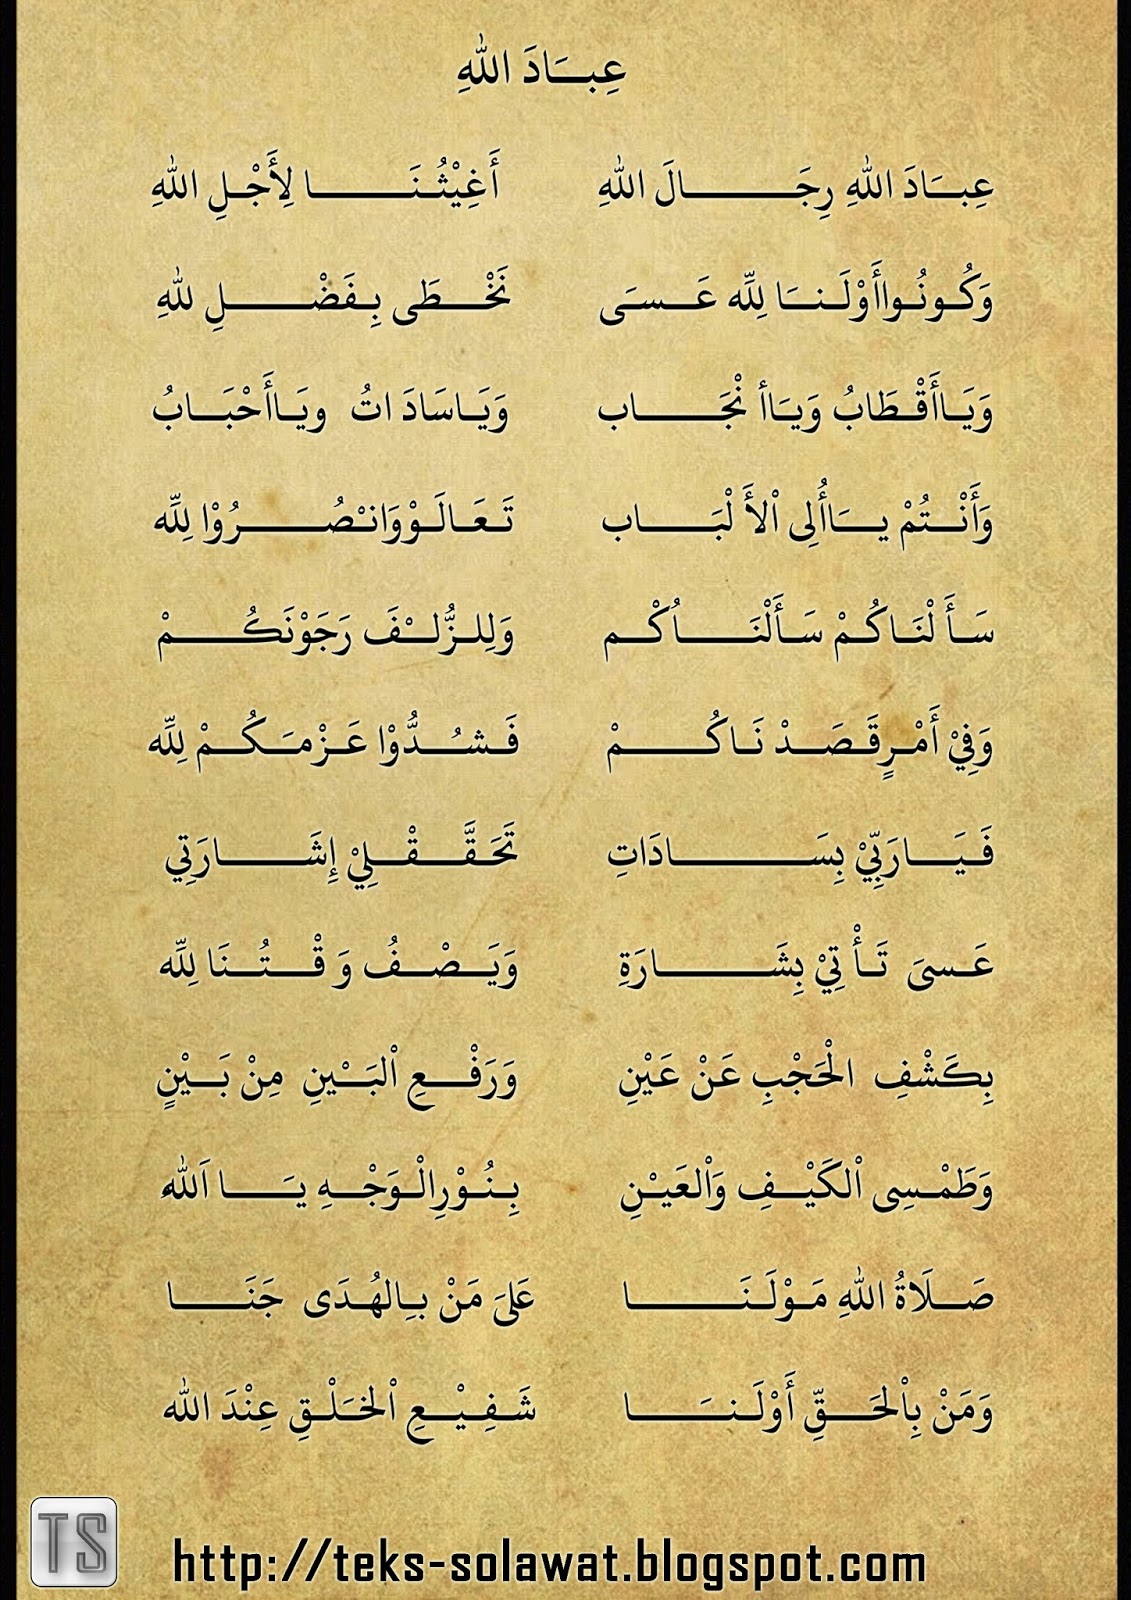 عِبَادَ اللهِ
عِبَادَ اللهِ رِجَالَ اللهِ أَغِيْثُنَا لِأَجْلِ اللهِ
وَكُونُواأَوْلَنَا لِلّٰه عَسَى نَخْطَى بِفَضْلِ للهِ
وَيَاأَقْطَابُ وَيَاأ نْجَاب وَيَاسَادَ اتُ ويَاأَحْبَابُ
وَأَنْتُمْ يَاأُلِى اْلأَ لْبَاب تَعَالَوْوَانْصُرُوْا لِلّٰه
سَأَ لْنَاكُمْ سَأَلْنَاُكْم وَلِلزُّلْفَ رَجَوْنَكُمْ
وَفِيْ أَمْرٍقَصَدْ نَاكُمْ فَشُدُّوْا عَزْمَكُمْ لِلّٰه
فَيَارَبِّيْ بِسَادَاتِ تَحَقَّقْلِيْ إِشَارَتِي
عَسىَ تَأْ تِيْ بِشَارَةِ وَيَصْفُ وَ قْتُنَا لِلّٰه
بِكَشْفِ الْحَجْبِ عَنْ عَيْنِ وَرَفْعِ اْلبَيْنِ مِنْ بَيْنٍ
وَطَمْسِى اْلكَيْفِ وَاْلعَيْنِ بِنُوْرِالْوَجْهِ يَا اَللهُ
صَلَاةُ اللهِ مَوْلَنَا عَلىَ مَنْ بِالهُدَى جَنَا
وَمَنْ بِاْلحَقِّ أَوْلَنَا شَفِيْعِ اْلخَلْقِ عِنْدَ الله
TS
http://teks-solawat.blogspot.com